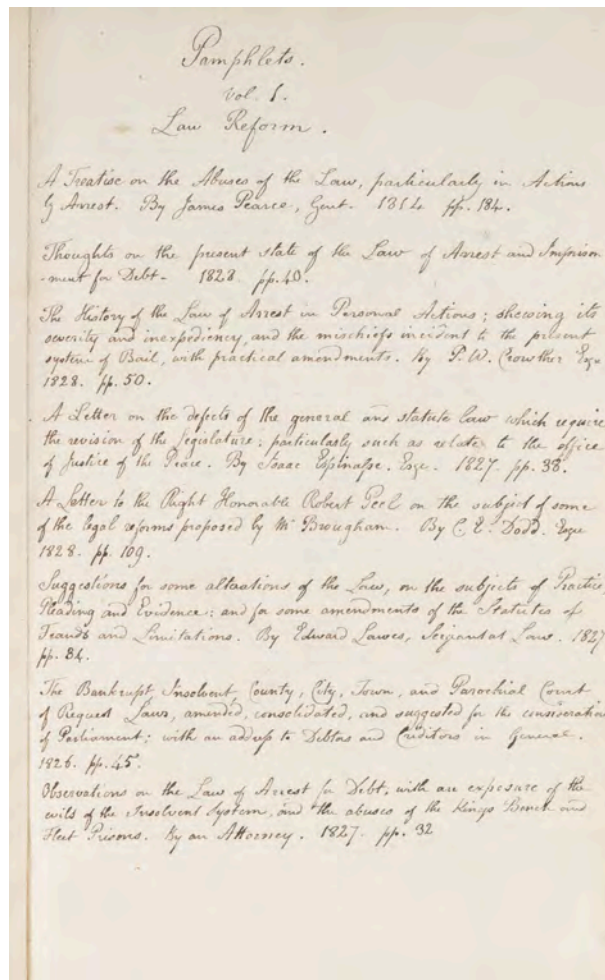 Pamphlets.
Vol. 1.
Law Reform.
A Treatise on the Abuses of the Law, particularly in Actions
by Arrest. By James Pearce, Gent. 1814 pp. 184.
Thoughts on the present state of the Law of Arrest and Imprison
-ment for Debt - 1828 pp. 40.
The History of the Law of Arrest in Personal Actions; shewing its
severity and inexpediency, and the mischiefs incident to the present
system of Bail, with practical amendments. By P. W. Crowther Esqe
1828. pp. 50.
A Letter on the defects of the general and statute law which require
the revision of the legislature; particularly such as relate to the office
of Justice of the Peace. By Isaac Espinasse. Esqe. 1827. pp. 38.
A Letter to the Right Honorable Robert Peel on the subject of some
of the legal reforms proposed by Mr Brougham. By C. E. Dodd. Esqe
1828. pp. 109.
Suggestions for some alterations of the Law, on the subjects of Practice
Pleading and Evidence; and for some amendments of the Statutes of
Frauds and Limitations. By Edward Lawes, Serjeant at Law. 1827
pp. 84.
The Bankrupt, Insolvent, County, City, Town, and Parochial Court
of Request Laws, amended, consolidated, and suggested for the consideration
of Parliament; with an address to Debtors and Creditors in general.
1826. pp. 45.
Observations on the Law of Arrest for Debt, with an exposure of the
evils of the Insolvent System, and the abuses of the Kings Bench and
Fleet Prisons. By an Attorney. 1827. pp. 32